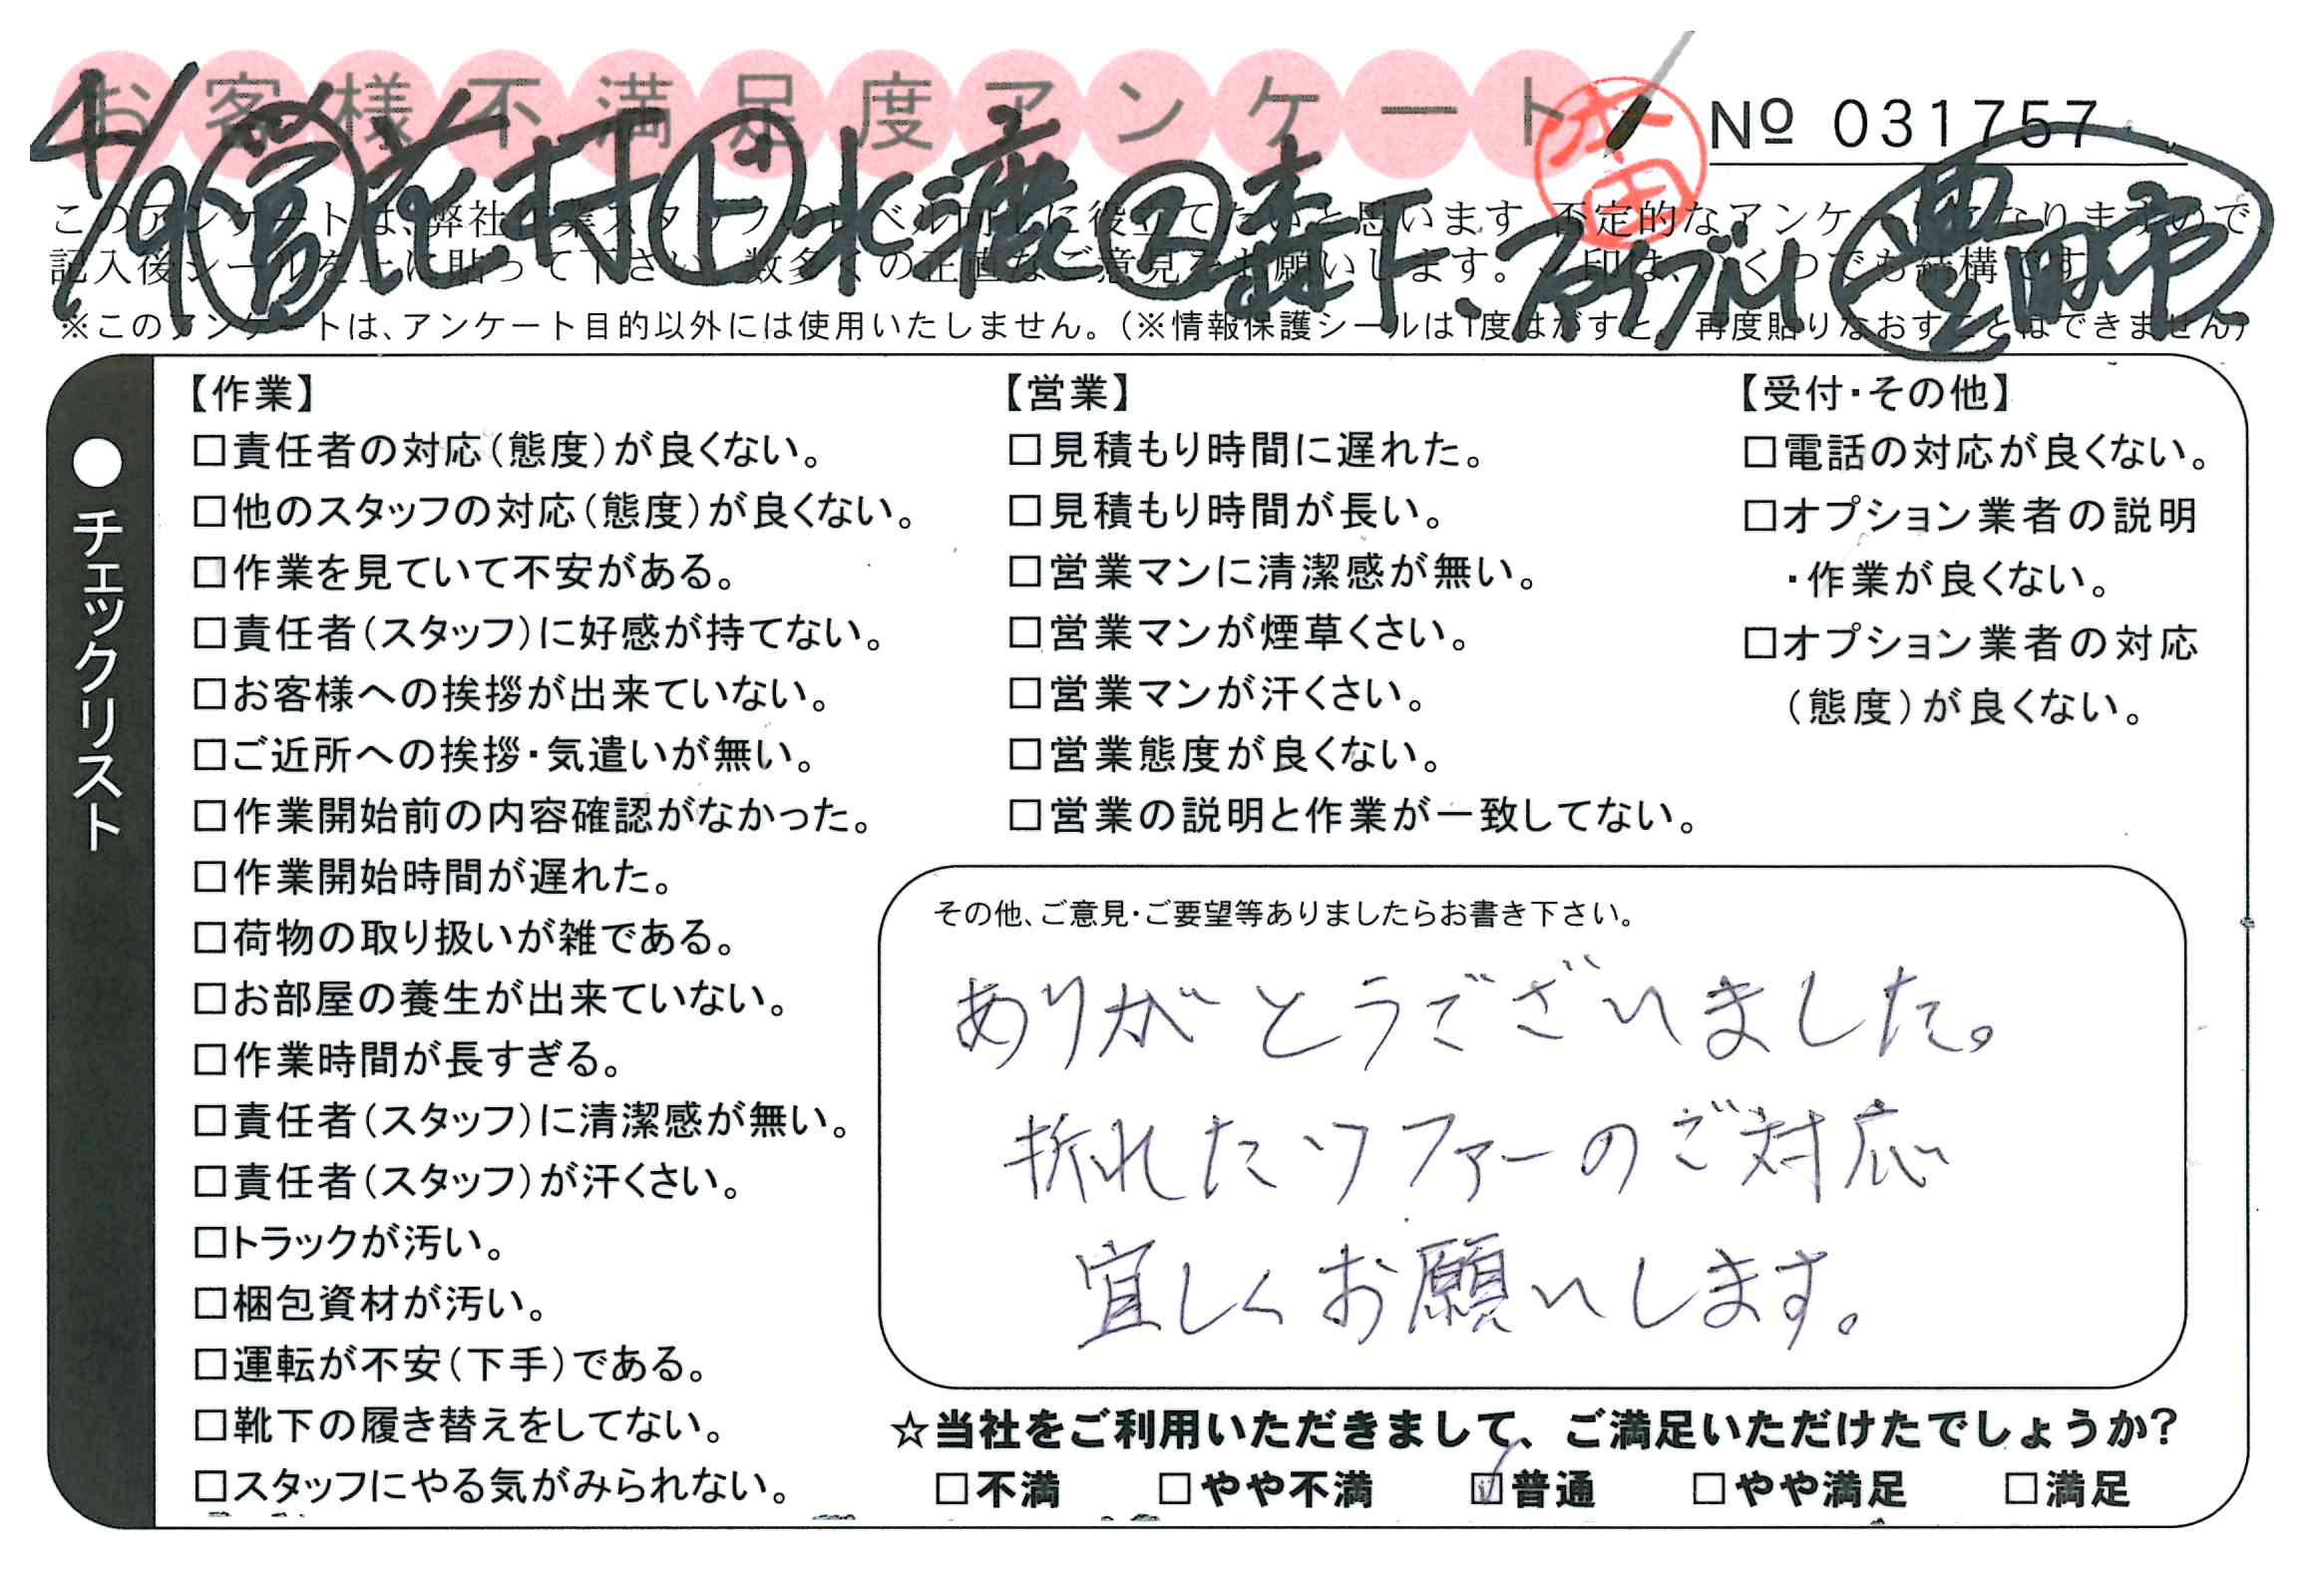 お客様不満足度アンケート
本田
№ 031757
4/9 営 花村 上 水瀧 2 森下・アシブル 豊田市
このアンケートは、弊社作業スタッフのレベル向上に役立てたいと思います。不定的なアンケートになりますので、
記入後シールを上に貼って下さい。数多くの正直なご意見をお願いします。レ印は、いくつでも結構です。
※このアンケートは、アンケート目的以外には使用いたしません。（※情報保護シールは1度はがすと、再度貼りなおすことはできません）
●チェックリスト
【作業】
□責任者の対応（態度）が良くない。
□他のスタッフの対応（態度）が良くない。
□作業を見ていて不安がある。
□責任者（スタッフ）に好感が持てない。
□お客様への挨拶が出来ていない。
□ご近所への挨拶・気遣いが無い。
□作業開始前の内容確認がなかった。
□作業開始時間が遅れた。
□荷物の取り扱いが雑である。
□お部屋の養生が出来ていない。
□作業時間が長すぎる。
□責任者（スタッフ）に清潔感が無い。
□責任者（スタッフ）が汗くさい。
□トラックが汚い。
□梱包資材が汚い。
□運転が不安（下手）である。
□靴下の履き替えをしてない。
□スタッフにやる気がみられない。
【営業】
□見積もり時間に遅れた。
□見積もり時間が長い。
□営業マンに清潔感が無い。
□営業マンが煙草くさい。
□営業マンが汗くさい。
□営業態度が良くない。
□営業の説明と作業が一致してない。
【受付・その他】
□電話の対応が良くない。
□オプション業者の説明
・作業が良くない。
□オプション業者の対応
（態度）が良くない。
その他、ご意見・ご要望等ありましたらお書き下さい。
ありがとうございました。
折れたソファーのご対応
宜しくお願いします。
☆当社をご利用いただきまして、ご満足いただけたでしょうか？
□不満 □やや不満 ☑普通 □やや満足 □満足